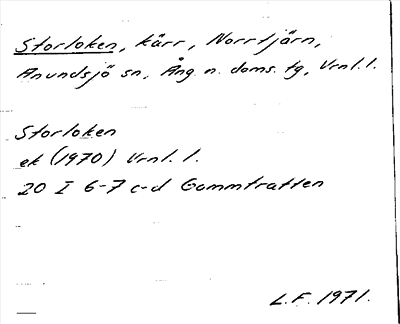 Storloken, kärr, Norrtjärn,
Anundsjö sn, Ång. n. doms. tg, Vrnl. l.
Storloken
ek (1970) Vrnl. l.
20 I 6-7 c-d Gammtratten
L.F. 1971.